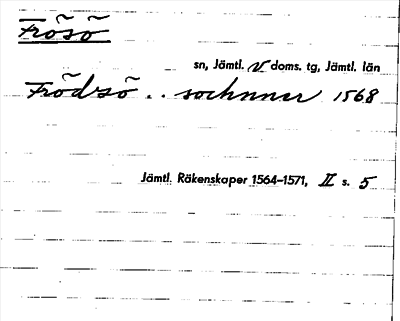 Frösö
sn, Jämtl. V doms. tg, Jämtl. län
Frödzsö .. sochnner 1568
Jämtl. Räkenskaper 1564–1571, II s. 5